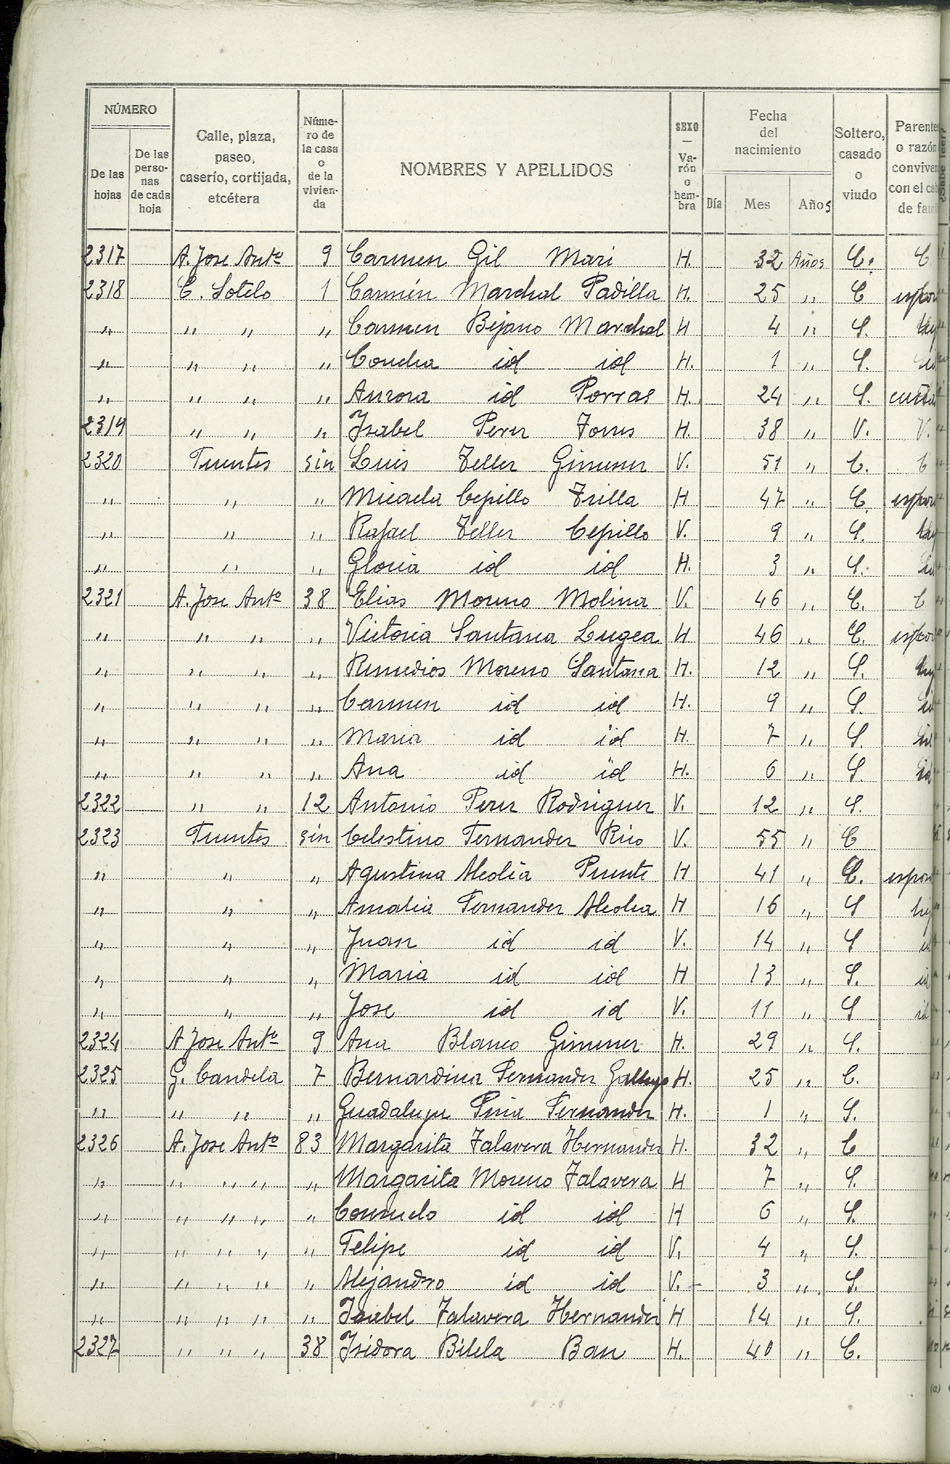 NÚMERO
De las hojas
De las perso- nas de cada hoja
Calle, plaza, paseo, caserío, cortijada, etcétera
Núme- ro de la casa o de la vivien- da
NOMBRES Y APELLIDOS
SEXO — Va- rón o hem- bra
Fecha del nacimiento
Día
Mes
Años
Soltero, casado o viudo
2317 A. Jose Antº 9 Carmen Gil Mari H. 32 Años C. C
2318 C. Sotelo 1 Carmen Marchal Padilla H. 25 " C
" " " " Carmen Bejano Marchal H 4 " S.
" " " " Concha id id H. 1 " S.
" " " " Aurora id Porras H. 24 " S.
2319 " " " Isabel Perez Torres H. 38 " V. V.
2320 Fuentes sin Luis Teller Gimener V. 51 " C. C
" " " Micaela Cepillo Trilla H 47 " C.
" " " Rafael Teller Cepillo V. 9 " S.
" " " Gloria id id H. 3 " S.
2321 A. Jose Antº 38 Elias Moreno Molina V. 46 " C. C
" " " " Victoria Santana Lugea H 46 " C.
" " " " Remedios Moreno Santana H. 12 " S.
" " " " Carmen id id H. 9 " S.
" " " " Maria id id H. 7 " S.
" " " " Ana id id H. 6 " S
2322 " " 12 Antonio Perez Rodriguer V. 12 " S.
2323 Fuentes sin Celestino Fernander Rico V. 55 " C
" " " Agustina Alcolia Puente H 41 " C.
" " " Amalia Fernander Alcolia H 16 " S
" " " Juan id id V. 14 " S
" " " Maria id id H 13 " S.
" " " Jose id id V. 11 " S
2324 A Jose Antº 9 Ana Blanco Gimener H. 29 " S.
2325 G. Candela 7 Bernardina Fernander Gallego H. 25 " C.
" " " " Guadalupe Peña Fernander H. 1 " S.
2326 A. Jose Antº 83 Margarita Talavera Hernander H. 32 " C
" " " " " Margarita Moreno Talavera H 7 " S.
" " " " " Consuelo id id H 6 " S.
" " " " " Felipe id id V. 4 " S.
" " " " " Alejandro id id V. 3 " S.
" " " " " Isabel Talavera Hernander H 14 " S.
2327 " " " 38 Isidora Bilela Ban H. 40 " C.